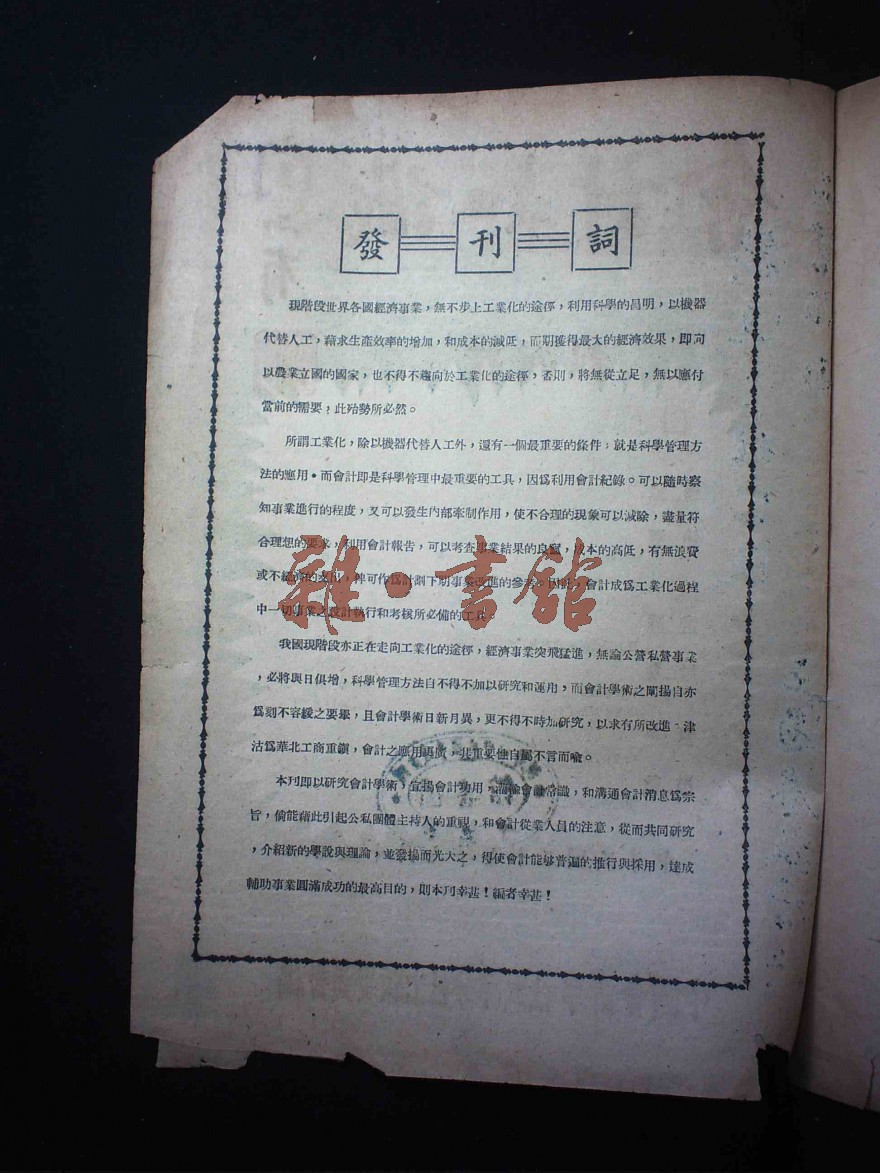 發刊詞
現階段世界各國經濟事業，無不步上工業化的途徑，利用科學的昌明，以機器
代替人工，藉求生產效率的增加，和成本的減低，而期獲得最大的經濟效果，即向
以農業立國的國家，也不得不趨向於工業化的途徑，否則，將無從立足，無以應付
當前的需要，此殆勢所必然。
所謂工業化，除以機器代替人工外，還有一個最重要的條件；就是科學管理方
法的應用・而會計即是科學管理中最重要的工具，因爲利用會計紀錄。可以隨時察
知事業進行的程度，又可以發生內部牽制作用，使不合理的現象可以減除，盡量符
合理想的要求，利用會計報告，可以考查事業結果的良窳，成本的高低，有無浪費
或不經濟的支出，俾可作爲計劃下期事業改進的參考。因此，會計成爲工業化過程
中一切事業之設計執行和考核所必備的工具
我國現階段亦正在走向工業化的途徑，經濟事業突飛猛進，無論公營私營事業
，必將與日俱增，科學管理方法自不得不加以研究和運用，而會計學術之闡揚自亦
爲刻不容緩之要舉，且會計學術日新月異，更不得不時加研究，以求有所改進－津
沽爲華北工商重鎮，會計之應用更廣，其重要性自屬不言而喩。
本刊即以研究會計學術，宣揚會計功用，灌輸會計常識，和溝通會計消息爲宗
旨，倘能藉此引起公私團體主持人的重視，和會計從業人員的注意，從而共同研究
，介紹新的學說與理論，並發揚而光大之，得使會計能够普遍的推行與採用，達成
輔助事業圓滿成功的最高目的，則本刊幸甚！編者幸甚！
雜・書館